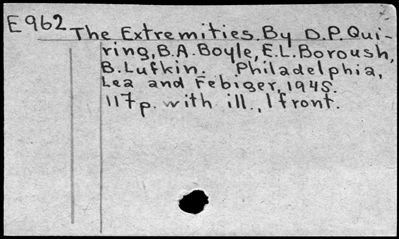 E962 The Extremities. By D.P. Qui-
ring, B.A. Boyle, E.L. Boroush,
B. Lufkin. Philadelphia,
Lea and Febiger, 1945.
117p. with ill., 1 front.